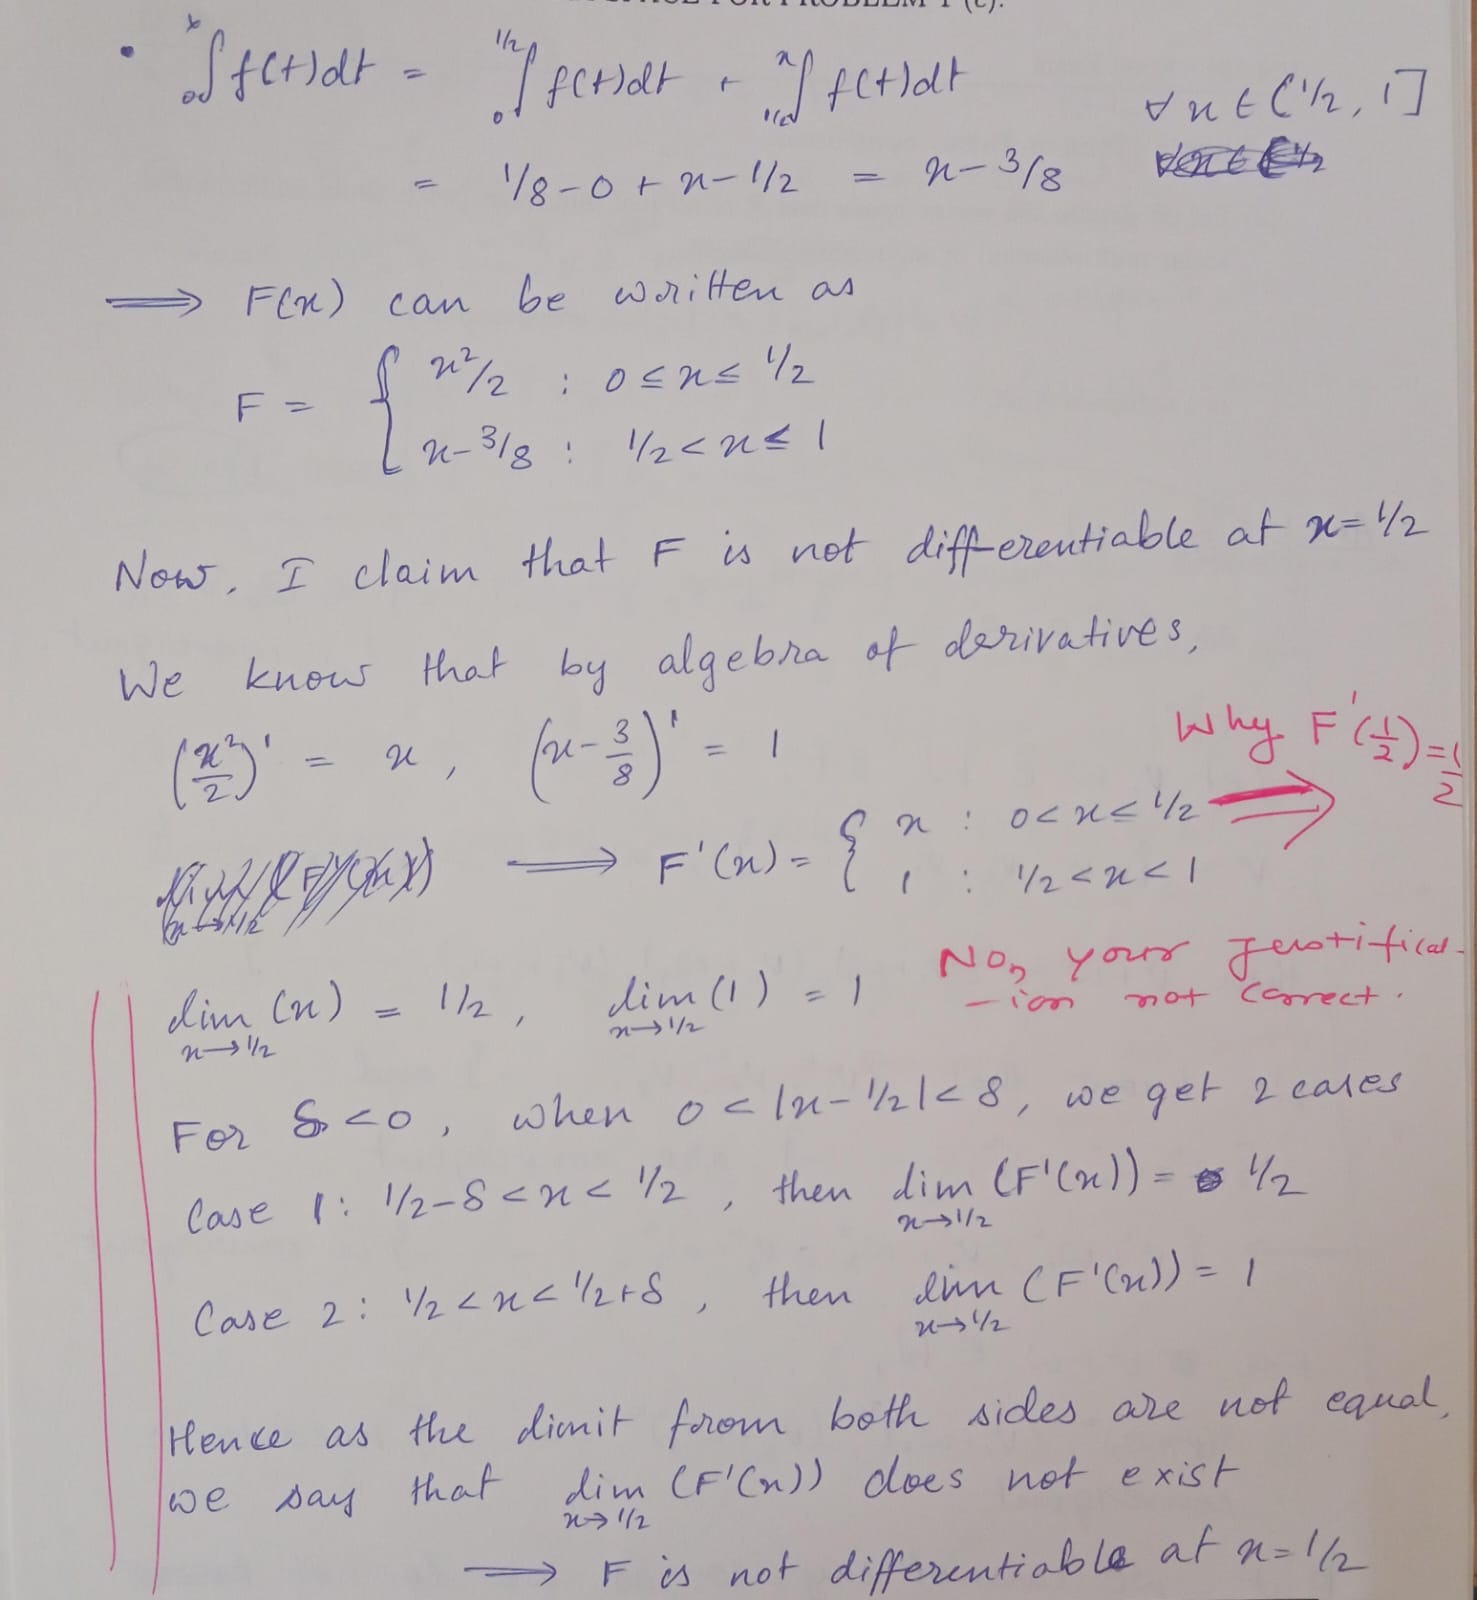 SPACE FOR PROBLEM 1 (c).
• ∫₀ˣ f(t)dt = ∫₀^{1/2} f(t)dt + ∫_{1/2}^x f(t)dt ∀ x ∈ (1/2, 1]
= 1/8 - 0 + x - 1/2 = x - 3/8
⟹ F(x) can be written as
F = { x²/2 : 0 ≤ x ≤ 1/2
x - 3/8 : 1/2 < x ≤ 1
Now, I claim that F is not differentiable at x = 1/2
We know that by algebra of derivatives,
(x²/2)' = x, (x - 3/8)' = 1
Why F'(1/2) = 1/2
⟹ F'(x) = { x : 0 < x ≤ 1/2 ⟹
1 : 1/2 < x < 1
No, your justificat-
-ion not correct.
lim_{x→1/2} (x) = 1/2, lim_{x→1/2} (1) = 1
For δ < 0, when 0 < |x - 1/2| < δ, we get 2 cases
Case 1: 1/2 - δ < x < 1/2, then lim_{x→1/2} (F'(x)) = 1/2
Case 2: 1/2 < x < 1/2 + δ, then lim_{x→1/2} (F'(x)) = 1
Hence as the limit from both sides are not equal,
we say that lim_{x→1/2} (F'(x)) does not exist
⟹ F is not differentiable at x = 1/2